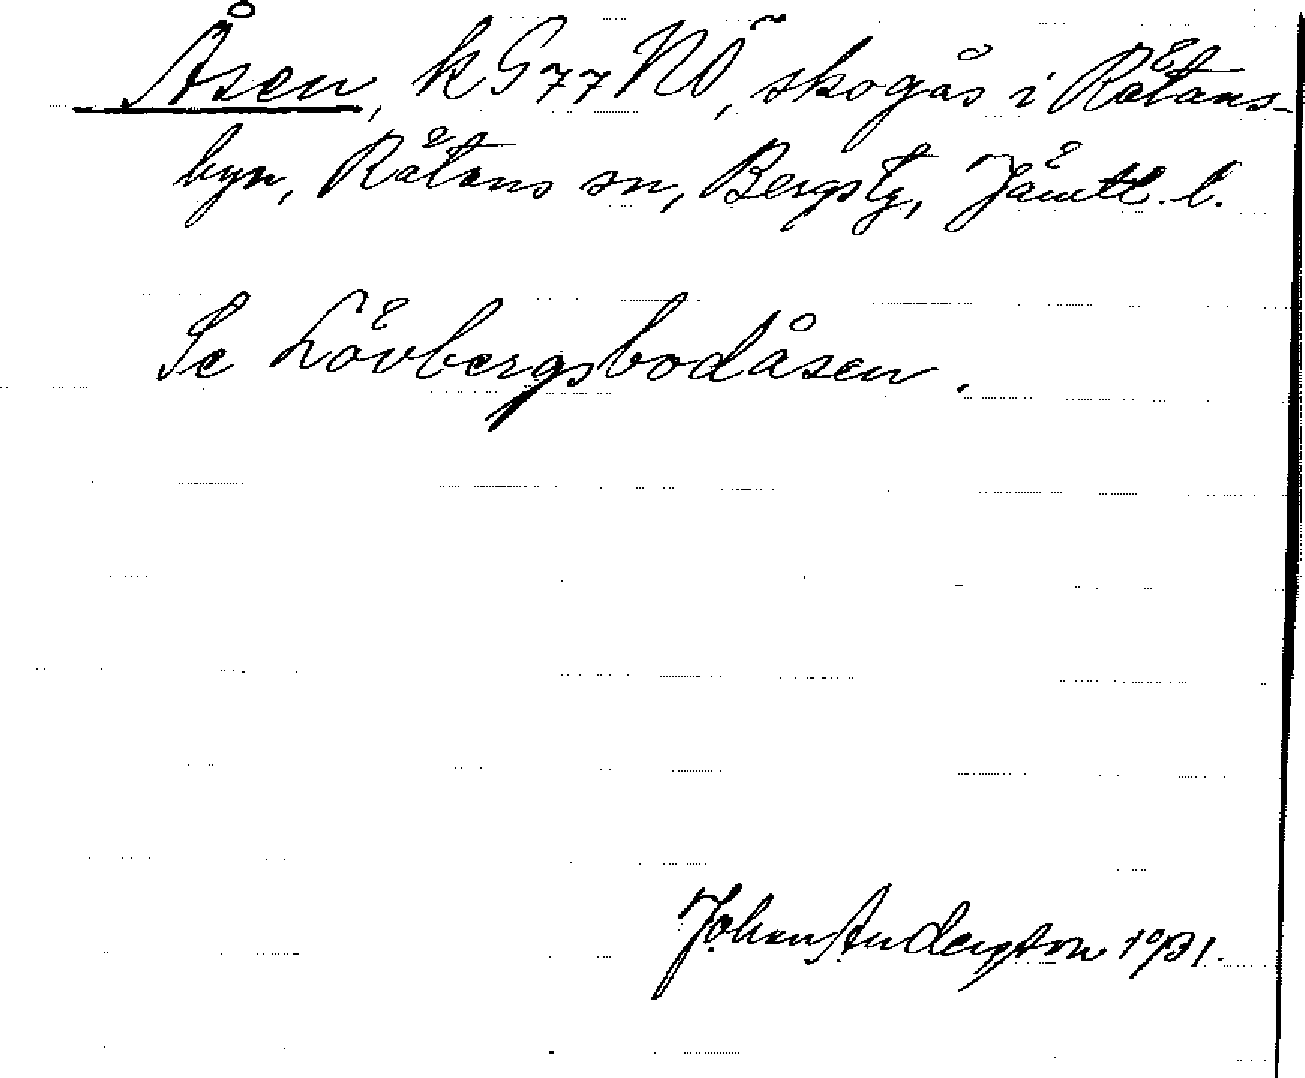 Åsen, k G 77 NÖ, skogås i Rätans-
byn, Rätans sn, Bergs tg, Jämtl. l.
Se Lövbergsbodåsen.
Johan Andersson 1931.